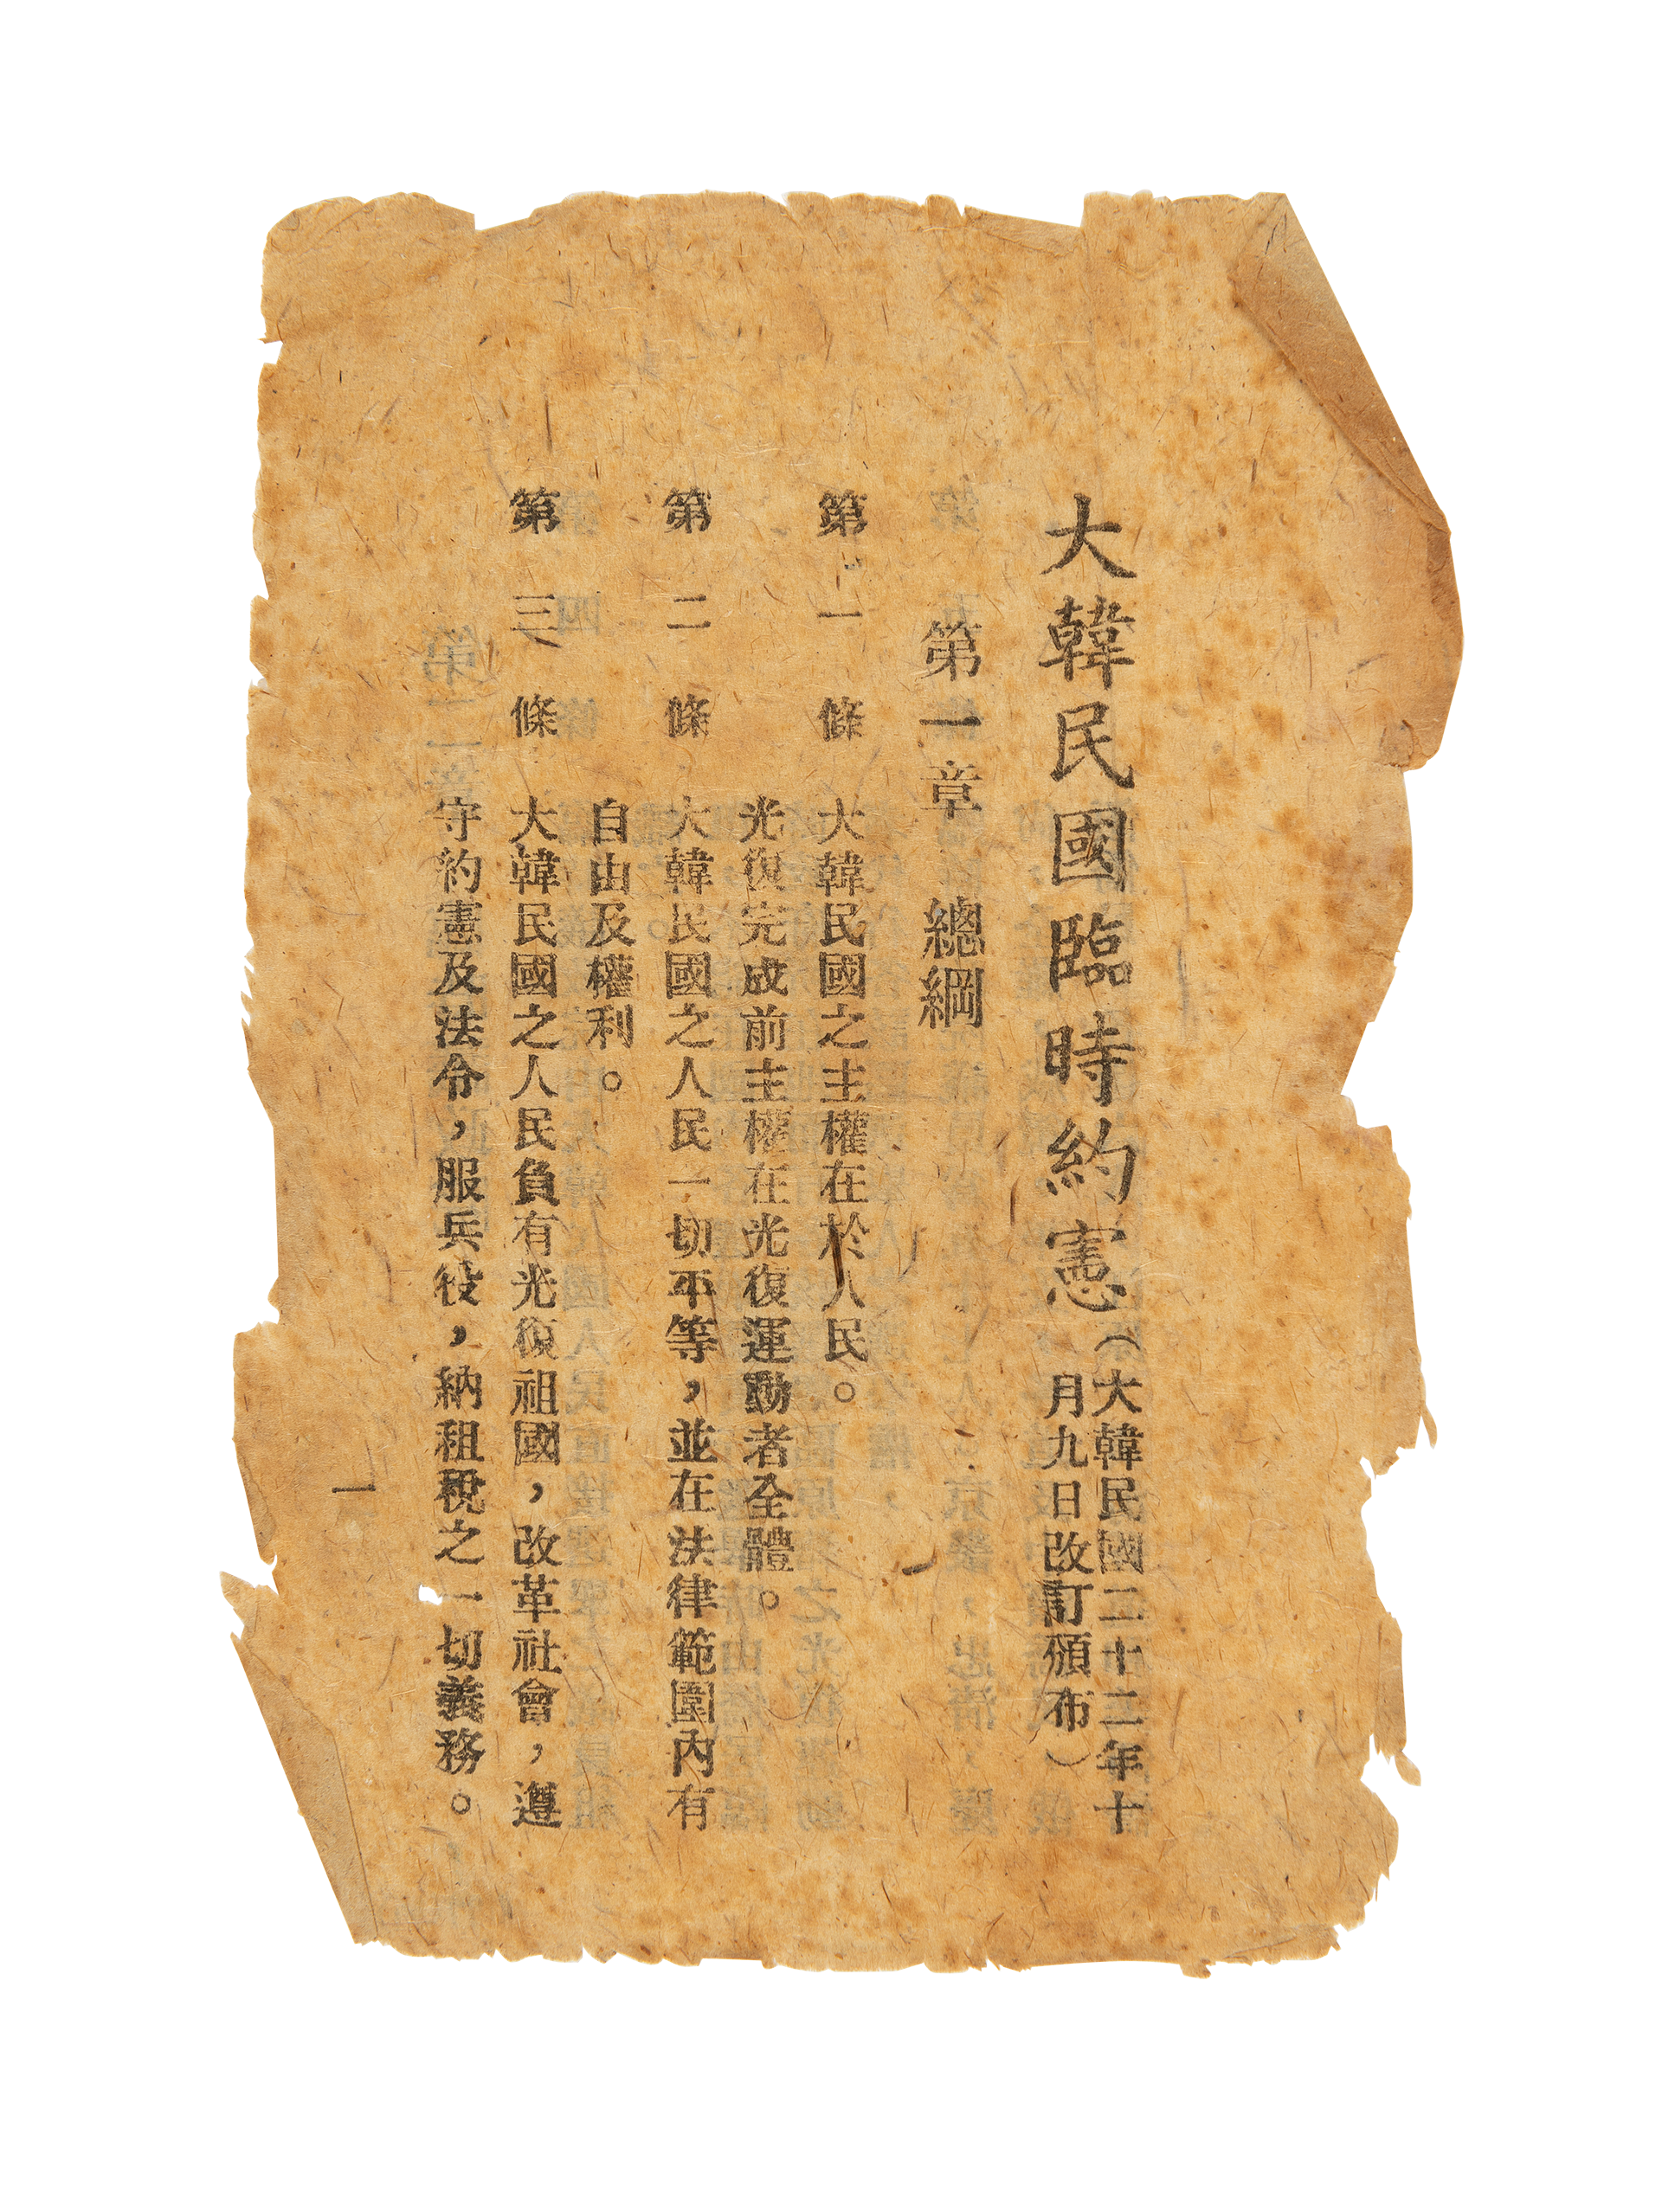 大韓民國臨時約憲（大韓民國二十二年十
月九日改訂頒布）
第一章 總綱
第一條 大韓民國之主權在於人民。
光復完成前主權在光復運動者全體。
第二條 大韓民國之人民一切平等，並在法律範圍內有
自由及權利。
第三條 大韓民國之人民負有光復祖國，改革社會，遵
守約憲及法令，服兵役，納租稅之一切義務。
一